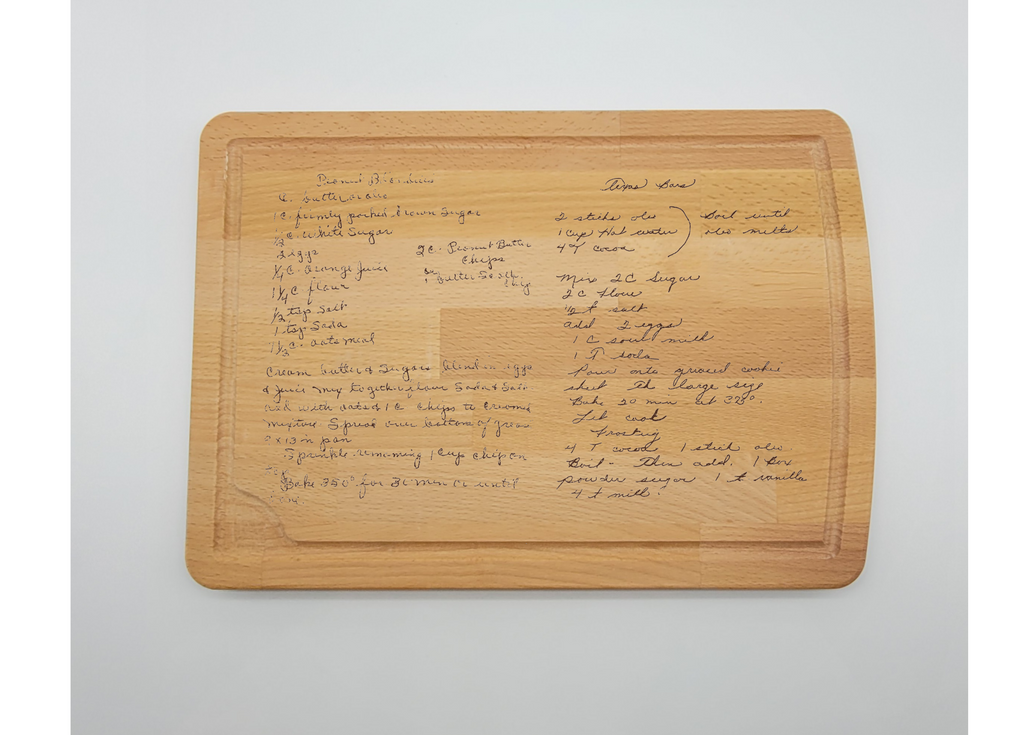 Peanut Brownies
C. butter or oise
1 C. firmly packed brown Sugar
1/2 C. White Sugar
2 eggs
1/4 C. Orange Juice
1 1/4 C flour
1/2 tsp Salt
1 tsp Soda
1 1/3 C. Oatsmeal
2 C. Peanut Butter
Chips
or
1 Butter Scotch
Chip
Cream butter & Sugars blend in eggs
& juice mix together flour Soda & Salt
add with oats & 1 C Chips to Creamed
mixture. Spread over bottom of greas
9 x 13 in pan
Sprinkle remaining 1 Cup chips on
top
Bake 350° for 30 min or until
done.
Texas Bars
2 sticks oleo
1 Cup Hot water
4 T cocoa
Boil until
oleo melts
Mix 2 C Sugar
2 C flour
1/2 t salt
add 2 eggs
1 C sour milk
1 T soda
Pour onto greased cookie
sheet The large size
Bake 20 min at 375°.
Let cool
Frosting
4 T cocoa 1 stick oleo
Boil - Then add. 1 Box
powder sugar 1 t vanilla
4 t milk.